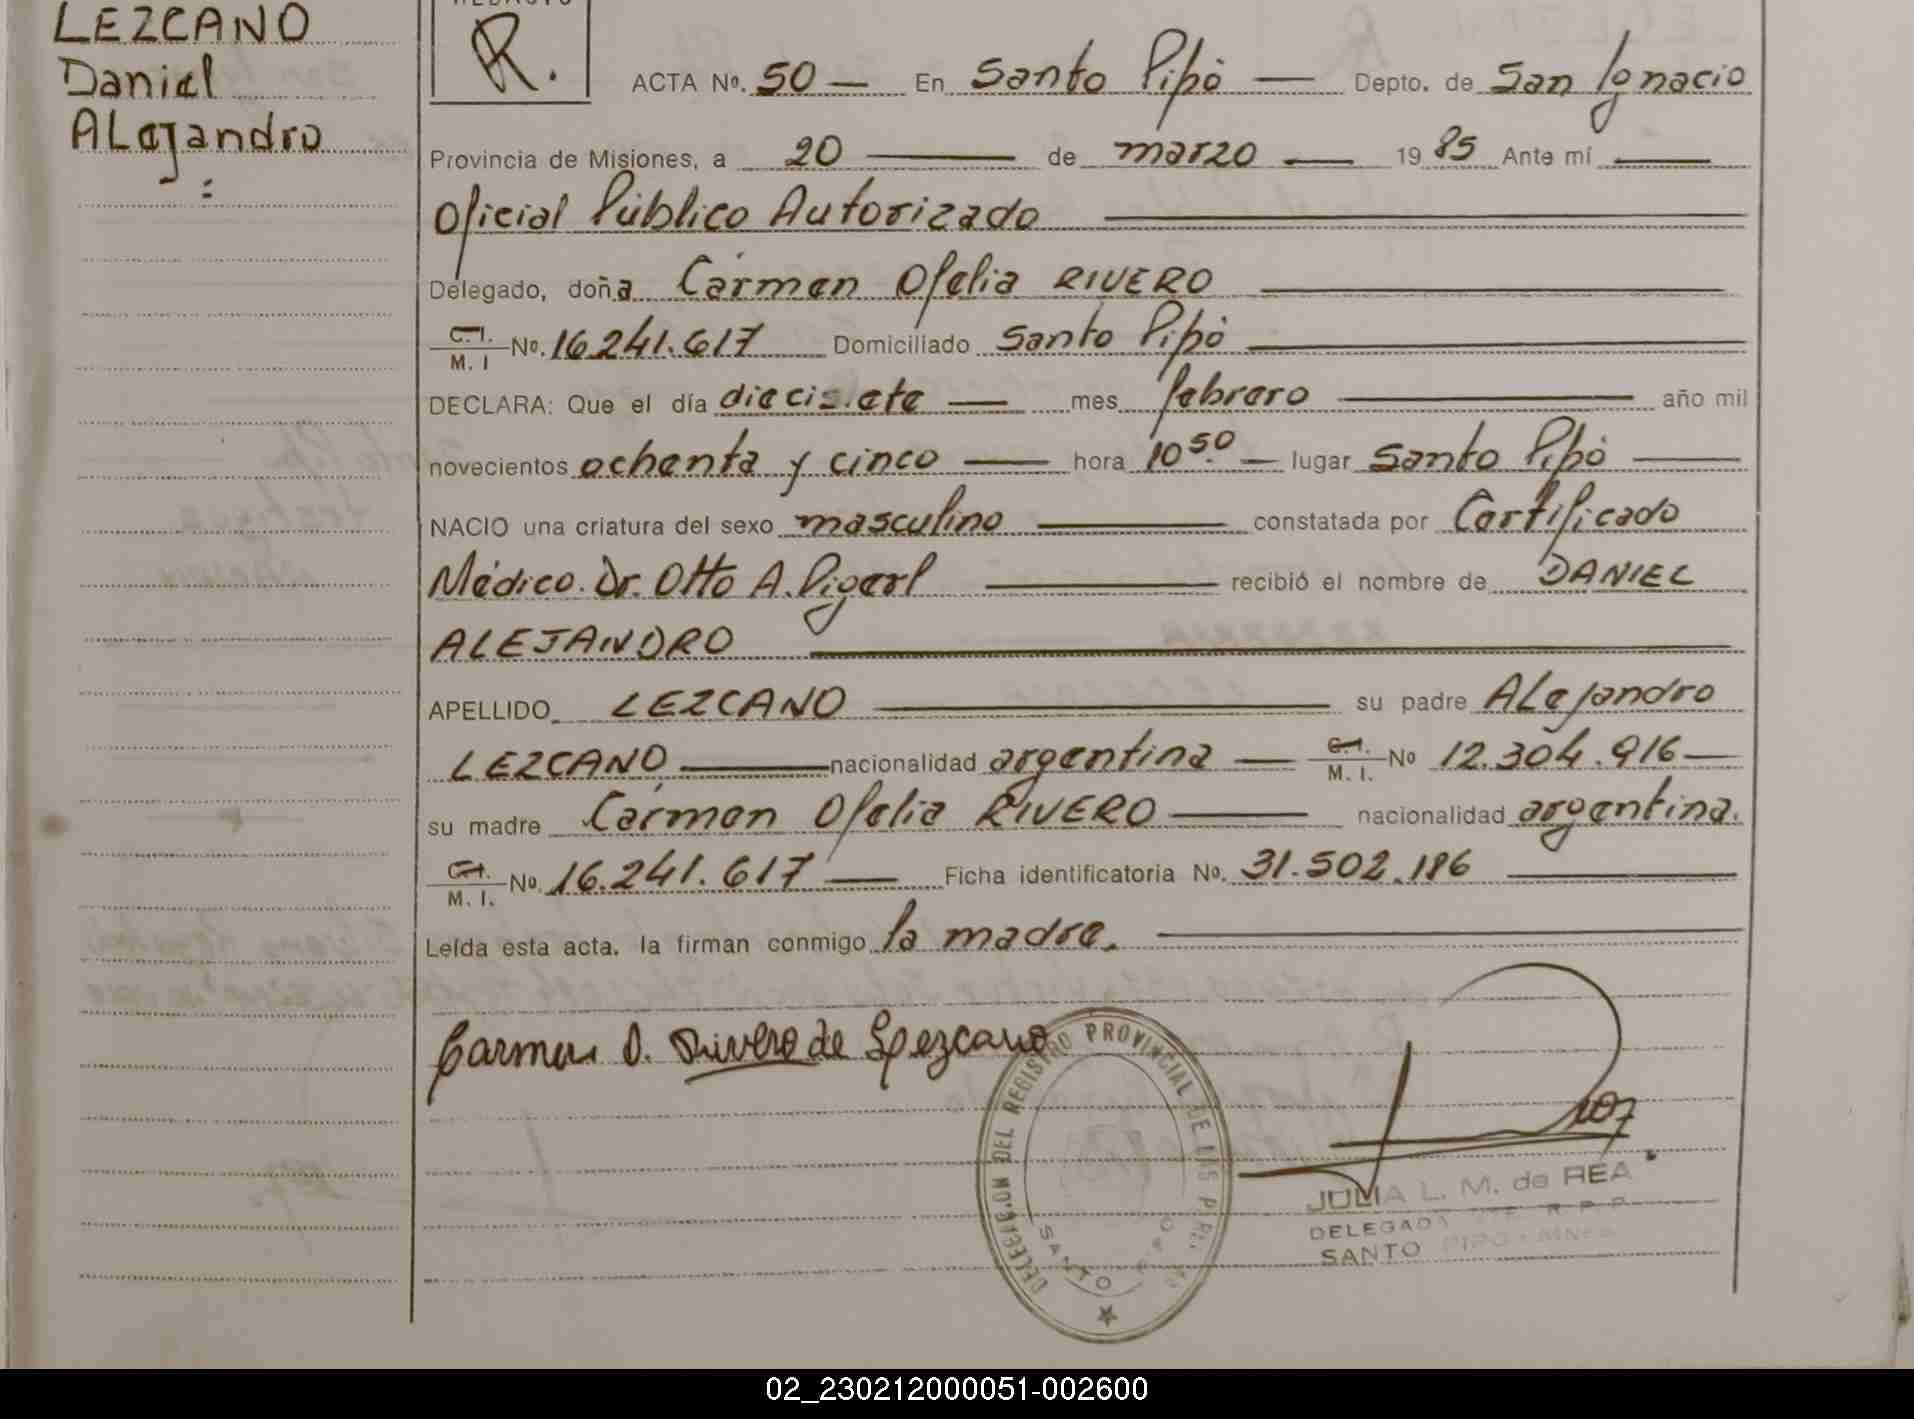 LEZCANO
Daniel
ALejandro
R.
ACTA No. 50 — En Santo Pipó — Depto. de San Ignacio
Provincia de Misiones, a 20 — de marzo — 19 85 Ante mí —
Oficial Público Autorizado
Delegado, doña Carmen Ofelia RIVERO
C.I. M. I No. 16.241.617 Domiciliado Santo Pipó
DECLARA: Que el día diecisiete — mes febrero — año mil
novecientos ochenta y cinco — hora 10 50 — lugar Santo Pipó —
NACIO una criatura del sexo masculino — constatada por Certificado
Médico. Dr. Otto A. — recibió el nombre de DANIEL
ALEJANDRO
APELLIDO LEZCANO — su padre ALejandro
LEZCANO — nacionalidad argentina — C.I. M. I. No 12.304.916 —
su madre Carmen Ofelia RIVERO — nacionalidad argentina.
C.I. M. I. No. 16.241.617 — Ficha identificatoria No. 31.502.186 —
Leída esta acta, la firman conmigo la madre.
Carmen O. Rivero de Lezcano
DELEGACION DEL REGISTRO PROVINCIAL DE LAS PERSONAS
SANTO PIPO
JULIA L. M. de REA
DELEGADA R. P. P.
SANTO PIPO - MNES
02_230212000051-002600